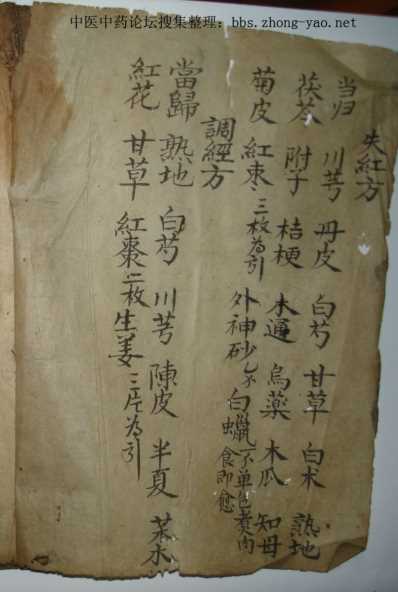 中医中药论坛搜集整理：bbs.zhong-yao.net
失紅方
当归 川芎 丹皮 白芍 甘草 白术 熟地
茯苓 附子 桔梗 木通 烏薬 木瓜 知母
菊皮 紅枣 三枚為引 外神砂 白蠟 不单包煮肉食即愈
調經方
當歸 熟地 白芍 川芎 陳皮 半夏
紅花 甘草 紅棗二枚 生姜三片為引